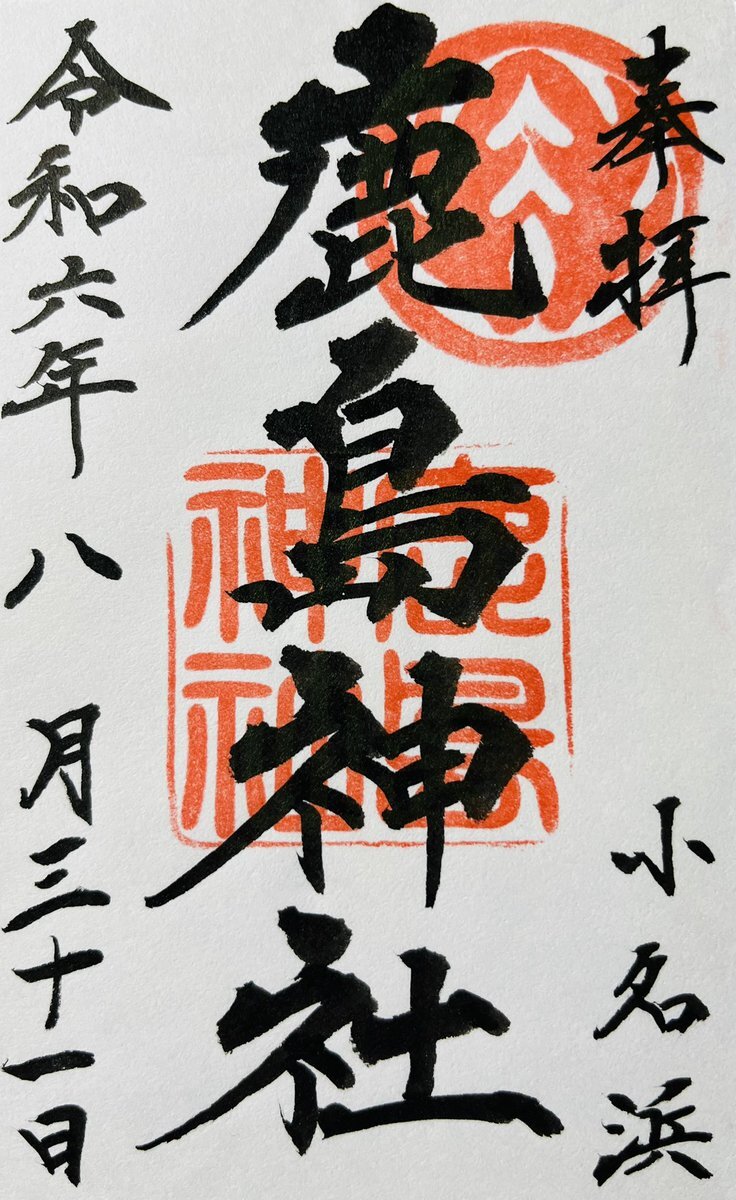 奉拝
小名浜
鹿島神社
鹿島神社
令和六年八月三十一日